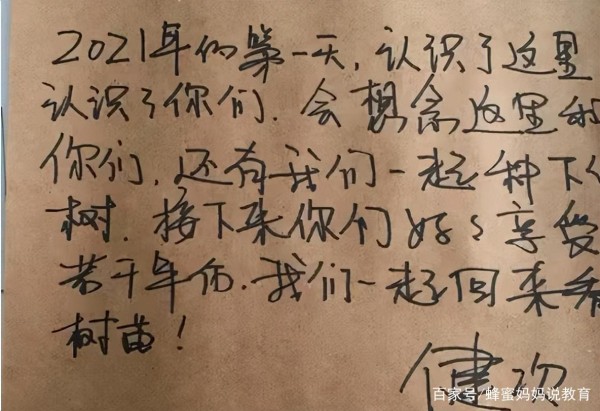 2021年的第一天，认识了这里
认识了你们．会想念这里和
你们．还有我们一起种下的
树．接下来你们好好享受
若干年后．我们一起回来看
树苗！
健次
百家号/蜂蜜妈妈说教育